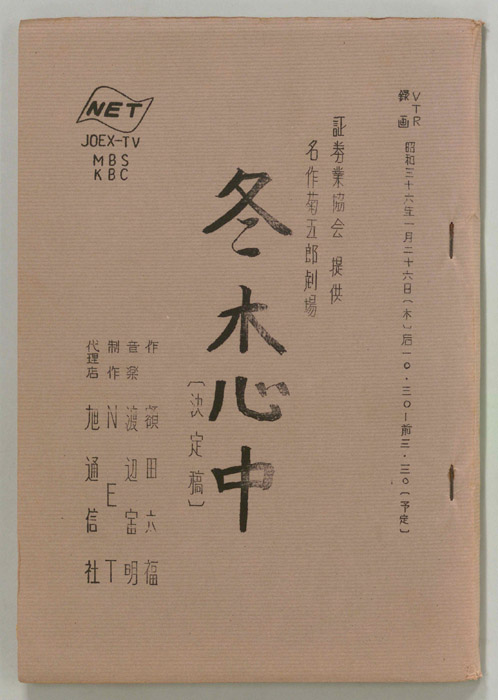 VTR録画 昭和三十六年一月二十六日(木)后一〇・三〇―前三・三〇(予定)
証券業協会 提供
名作菊五郎劇場
冬木心中
(決定稿)
作 額田六福
音楽 渡辺宙明
制作 NET
代理店 旭通信社
NET
JOEX-TV
MBS
KBC